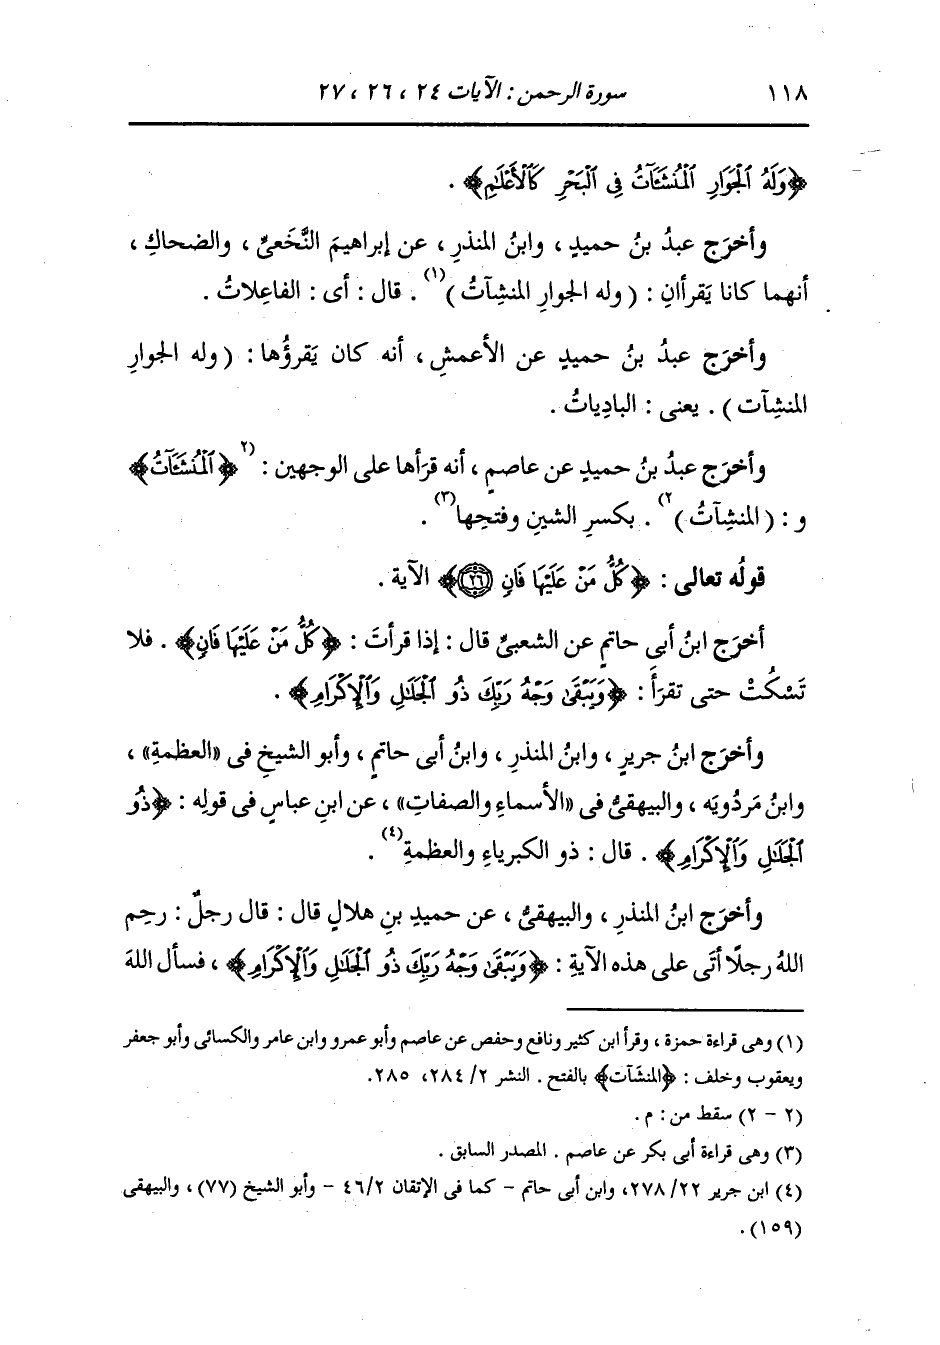 ١١٨ سورة الرحمن : الآيات ٢٤ ، ٢٦ ، ٢٧
﴿وَلَهُ ٱلْجَوَارِ ٱلْمُنشَـَٔاتُ فِى ٱلْبَحْرِ كَٱلْأَعْلَـٰمِ﴾ .
وأخرَج عبدُ بنُ حميدٍ ، وابنُ المنذرِ ، عن إبراهيمَ النَّخَعىِّ ، والضحاكِ ،
أنهما كانا يَقرأانِ : ( وله الجوارِ المنشِآتُ )(١) . قال : أى : الفاعِلاتُ .
وأخرَج عبدُ بنُ حميدٍ عن الأعمشِ ، أنه كان يَقرؤُها : ( وله الجوارِ
المنشِآت ) . يعنى : البادِياتُ .
وأخرَج عبدُ بنُ حميدٍ عن عاصمٍ ، أنه قرَأها على الوجهين : (٢﴿ٱلْمُنشَـَٔاتُ﴾
و : ( المنشِآتُ )٢) . بكسرِ الشينِ وفتحِها(٣) .
قولُه تعالى : ﴿كُلُّ مَنْ عَلَيْهَا فَانٍ ٢٦﴾ الآية .
أخرَج ابنُ أبى حاتمٍ عن الشعبىِّ قال : إذا قرأتَ : ﴿كُلُّ مَنْ عَلَيْهَا فَانٍ﴾ . فلا
تَسْكُتْ حتى تقرَأَ : ﴿وَيَبْقَىٰ وَجْهُ رَبِّكَ ذُو ٱلْجَلَـٰلِ وَٱلْإِكْرَامِ﴾ .
وأخرَج ابنُ جريرٍ ، وابنُ المنذرِ ، وابنُ أبى حاتمٍ ، وأبو الشيخِ فى «العظمةِ» ،
وابنُ مَردُويَه ، والبيهقىُّ فى «الأسماءِ والصفاتِ» ، عن ابنِ عباسٍ فى قولِه : ﴿ذُو
ٱلْجَلَـٰلِ وَٱلْإِكْرَامِ﴾ . قال : ذو الكبرياءِ والعظمةِ(٤) .
وأخرَج ابنُ المنذرِ ، والبيهقىُّ ، عن حميدِ بنِ هلالٍ قال : قال رجلٌ : رحِم
اللهُ رجلًا أتَى على هذه الآيةِ : ﴿وَيَبْقَىٰ وَجْهُ رَبِّكَ ذُو ٱلْجَلَـٰلِ وَٱلْإِكْرَامِ﴾ ، فسأل اللهَ
(١) وهى قراءة حمزة ، وقرأ ابن كثير ونافع وحفص عن عاصم وأبو عمرو وابن عامر والكسائى وأبو جعفر
ويعقوب وخلف : ﴿المنشَآت﴾ بالفتح . النشر ٢/ ٢٨٤، ٢٨٥.
(٢ - ٢) سقط من : م .
(٣) وهى قراءة أبى بكر عن عاصم . المصدر السابق .
(٤) ابن جرير ٢٢/ ٢٧٨، وابن أبى حاتم - كما فى الإتقان ٢/ ٤٦ - وأبو الشيخ (٧٧) ، والبيهقى
(١٥٩) .